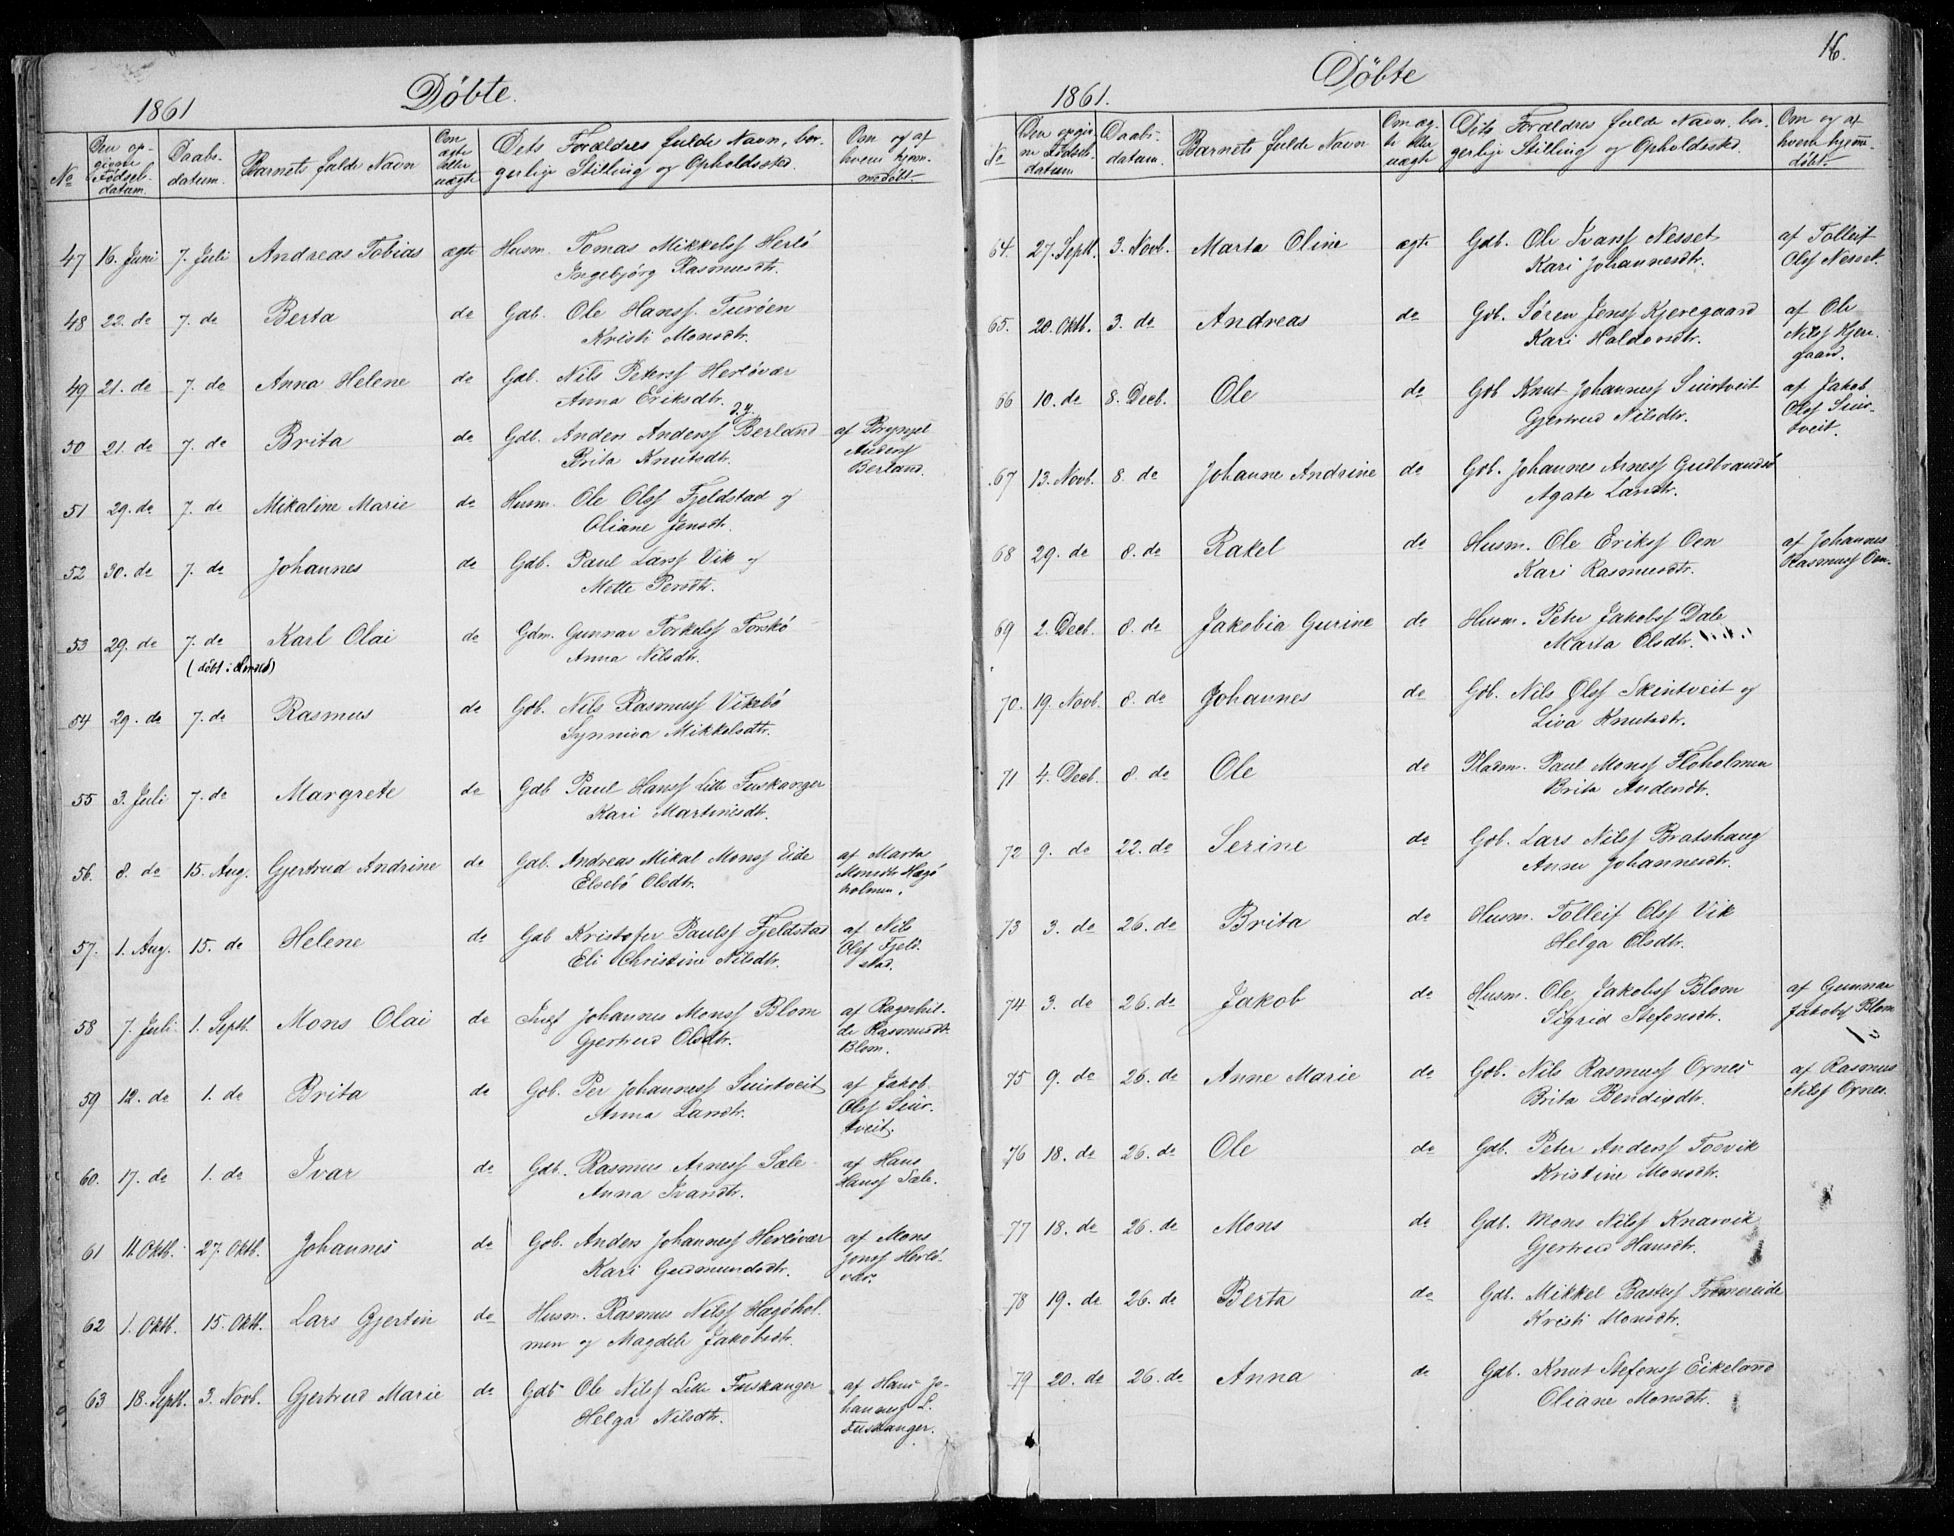 1861
Døbte.
No
Den opgivne Fødselsdatum.
Daabsdatum.
Barnets fulde Navn
Om ægte eller uægte
Dets Forældres fulde Navn, borgerlige Stilling og Opholdssted.
Om og af hvem hjemmedøbt.
47 16. Juni 7. Juli Andreas Tobias ægte Husm. Tomas Mikkelsf Herlö
Ingebjörg Rasmusdtr.
48 22. do 7. do Berta do Gdb. Ole Hansf. Turöen
Kristi Monsdtr.
49 21. do 7. do Anna Helene do Gdb. Nils Petersf Herlövær
Anna Eriksdtr.
50 21. do 7. do Brita do Gdb. Anders Andersf Berland af Brynjel
Brita Knutsdtr. Andersf
Berland.
51 29. do 7. do Mikaline Marie do Husm. Ole Olsf Fjeldstad og
Oliane Jensdtr.
52 30. do 7. do Johannes do Gdb. Paul Larsf Vik og
Mette Persdtr.
53 29. do 7. do Karl Olai do Gdm. Gunnar Torkelsf Torskö
(döbt i) Anna Nilsdtr.
54 29. do 7. do Rasmus do Gdb. Nils Rasmusf Viksbö
Synniva Mikkelsdtr.
55 3. Juli 7. do Margrete do Gdb Paul Hansf Litle Fuskanger
Kari Martinusdtr.
56. 8. do 15. Aug. Gjertrud Andrine do Gdb. Andreas Mikal Monsf Eide af Marta
Elsebö Olsdtr. Monsdtr Hagö
holmen.
57. 1. Aug. 15. do Helene do Gdb Kristofer Paulsf Fjeldstad af Nils
Eli Christine Nilsdtr. Olsf Fjeld
stad.
58 7. Juli 1. Septb. Mons Olai do Johannes Monsf Blom af Ragnhil-
Gjertrud Olsdtr. de Rasmusdtr
Blom.
59 12. do 1. do Brita do Gdb. Per Johannesf Suirtveit af Jakob
Anna Larsdtr. Olsf Suir-
tveit.
60. 17. do 1. do Ivar do Gdb. Rasmus Arnesf Sæle af Hans
Anna Ivarsdtr. Hansf Sæle.
61 11 Oktb. 27. Oktb. Johannes do Gdb. Anders Johannesf Herlövær af Mons
Kari Gudmundsdtr. Jonsf Herlö-
vær.
62 1. Oktb. 15. Oktb. Lars Gjertin do Husm. Rasmus Nilsf Hagöhol-
men og Magdele Jakobsdtr.
63 18. Septb. 3. Novb. Gjertrud Marie do Gdb Ole Nilsf Litle Fuskanger af Hans Jo-
Helga Nilsdtr. hannesf L.
Fuskanger.
16.
1861.
Døbte
No
Den opgivne Fødselsdatum
Daabsdatum.
Barnets fulde Navn
Om ægte eller uægte
Dets Forældres fulde Navn, borgerlige Stilling og Opholdssted.
Om og af hvem hjemmedøbt.
64. 27. Septb. 3. Novb. Marta Oline ægte Gdb. Ole Ivarsf Nesset af Tolleif
Kari Johannesdtr. Olsf Nesset.
65. 20. Oktb. 3. do Andreas do Gdb. Sören Jensf Kjeregaard af Ole
Kari Haldorsdtr. Nilsf Kjere-
gaard.
66 10. do 8. Decb. Ole do Gdb Knut Johannesf Suirtveit af Jakob
Gjertrud Nilsdtr. Olsf Suir-
tveit.
67 13. Novb. 8. do Johanne Andrine do Gdb. Johannes Arnesf Gudbrandsö
Agate Larsdtr.
68 29. do 8. do Rakel do Husm. Ole Eriksf Oen af Johannes
Kari Rasmusdtr. Rasmusf Oen.
69 2. Decb. 8. do Jakobia Gurine do Husm. Peter Jakobsf Dale
Marta Olsdtr.
70. 19. Novb. 8. do Johannes do Gdb. Nils Olsf Skintveit og
Liva Knutsdtr.
71 4. Decb. 8. do Ole do Pladsm. Paul Monsf Floholmen
Brita Andersdtr.
72 9. do 22. do Serine do Gdb. Lars Nilsf Bratshaug
Anne Johannesdtr.
73 3. do 26. do Brita do Husm. Tolleif Olsf Vik
Helga Olsdtr.
74 3. do 26. do Jakob do Husm. Ole Jakobsf Blom af Gunnar
Sigrid Stefensdtr. Jakobsf Blom
75 9. do 26. do Anne Marie do Gdb. Nils Rasmusf Ornes af Rasmus
Brita Bendixdtr. Nilsf Ornes.
76 18. do 26. do Ole do Gdb. Peter Andersf Tosvik
Kristine Monsdtr.
77 18. do 26. do Mons do Gdb. Mons Nilsf Knarvik
Gjertrud Hansdtr.
78 19. do 26. do Berta do Gdb. Mikkel Bastesf Fromereide
Kristi Monsdtr.
79 20. do 26. do Anna do Gdb. Knut Stefensf Eikeland
Oliane Monsdtr.